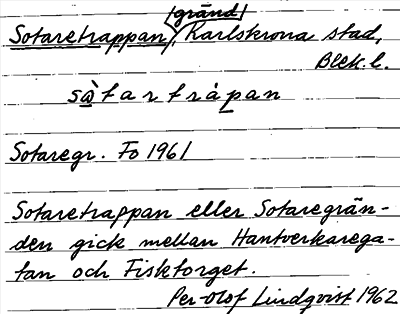 |gränd|
Sotaretrappan, Karlskrona stad,
Blek. l.
sà̱tartrap̱an
Sotaregr. Fo 1961
Sotaretrappan eller Sotaregrän-
den gick mellan Hantverkarega-
tan och Fisktorget.
Per-Olof Lindqvist 1962